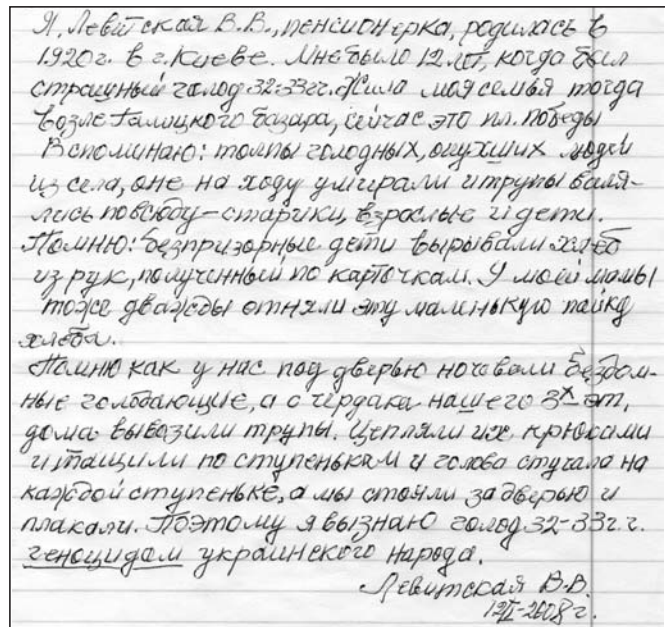 Я, Левитская В.В., пенсионерка, родилась в
1920г. в г. Киеве. Мне было 12 лет, когда был
страшный голод 32-33гг. Жила моя семья тогда
возле Галицкого базара, сейчас это пл. Победы
Вспоминаю: толпы голодных, опухших людей
из села, оне на ходу умирали и трупы валя-
лись повсюду - старики, взрослые и дети.
Помню: безпризорные дети вырывали хлеб
из рук, полученный по карточкам. У моей мамы
тоже дважды отняли эту маленькую пайку
хлеба.
Помню как у нас под дверью ночевали бездом-
ные голодающие, а с чердака нашего 3х эт.
дома вывозили трупы. Цепляли их крюками
и тащили по ступенькам и голова стучала на
каждой ступеньке, а мы стояли за дверью и
плакали. Поэтому я вызнаю голод 32-33г.г.
геноцидом украинского народа.
Левитская В.В.
2008г.